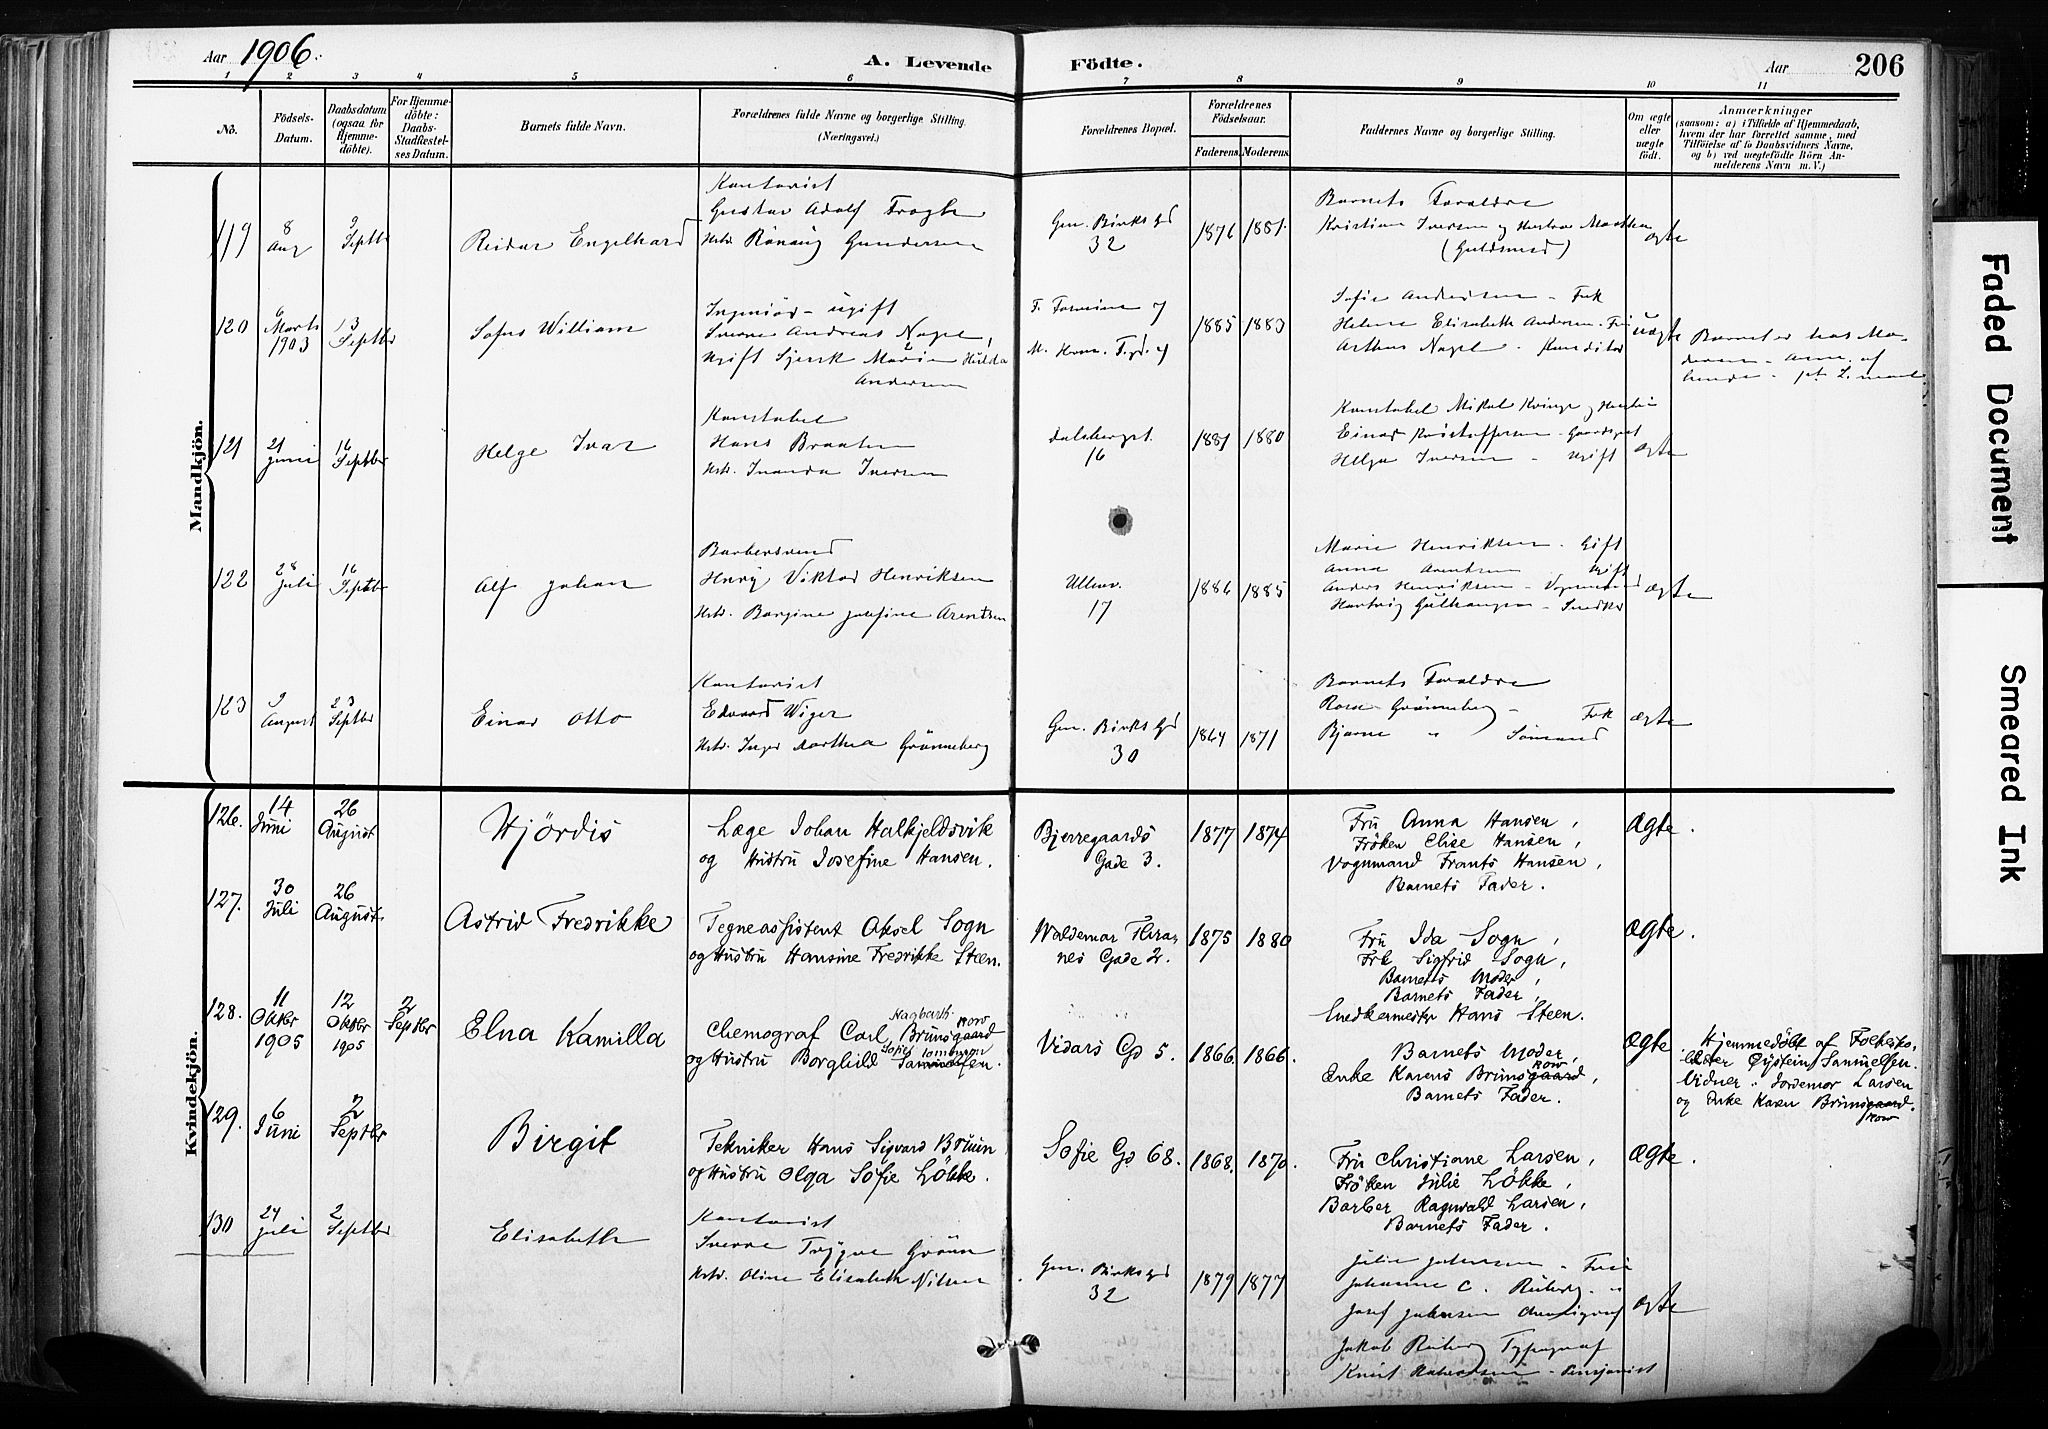 Aar 1906.
A. Levende Födte.
Aar
206
1 2 3 4 5 6 7 8 9 10 11
No.
Födsels-
Datum.
Daabsdatum
(ogsaa for
Hjemme-
döbte).
For Hjemme-
döbte:
Daabs-
Stadfæstel-
ses Datum.
Barnets fulde Navn.
Forældrenes fulde Navne og borgerlige Stilling.
(Næringsvei.)
Forældrenes Bopæl.
Forældrenes
Födselsaar.
Faderens. Moderens.
Faddernes Navne og borgerlige Stilling.
Om ægte
eller
uægte
födt.
Anmærkninger
(saasom: a) i Tilfælde af Hjemmedaab,
hvem der har forrettet samme, med
Tilföielse af to Daabsvidners Navne,
og b) ved uægtefödte Börn An-
melderens Navn m. V.)
Mandkjön.
119
8
Aug
9
Septbr
Reidar Engelhard
Kontorist
Gustav Adolf
Hstr. Rönaug Gundersen
Gen. Birks Gd
32
1876 1881.
Barnets Forældre
Kristian Iversen og Hustru
(Guldsmed)
ægte
120
6
Marts
1903
13
Septbr
Sofus William
Ingeniör - ugift
Sverre Andreas Nagel,
Ugift Marie Hulda
Andersen
1885 1883
Sofie Andersen - Frk
Helene Elisabeth Andersen - Fru
Arthur Nagel - Konditor
uægte
Barnet er hos Mo-
deren - Anm. af
hende -
121
21
Juni
16
Septbr
Helge Ivar
Konstabel
Hans Braaten
Hstr. Inanda Iversen
Dalsbergst.
16
1881 1880
Konstabel Mikal Kvinge og Hustru
Einar Kristoffersen - Gaardsgut
Helga Iversen - Ugift
ægte
122
28
Juli
16
Septbr
Alf Johan
Barbersvend
Henry Viktor Henriksen
Hstr. Borgine Josefine Arentsen
Ullev.
17
1886 1885
Marie Henriksen - Gift
Anna Arentsen Ugift
Anders Henriksen - Vognmand
Hartvig Gulhaugen - Snedker
ægte
123
9
August
23
Septbr
Einar Otto
Kontorist
Edvard Wiger
Hstr. Inger Marthea Grönneberg
Gen. Birks Gd
30
1864 1871
Barnets Forældre
Rosa Grönneberg - Frk
Bjarne " Sömand
ægte
Kvindekjön.
126.
14
Juni
26
August
Hjördis
Læge Johan Halkjeldsvik
og Hustru Josefine Hansen.
Bjerregaards
Gade 3.
1877 1874
Fru Anna Hansen,
Fröken Elise Hansen,
Vognmand Frants Hansen,
Barnets Fader.
Ægte.
127.
30
Juli
26
August
Astrid Fredrikke
Tegneassistent Aksel Sogn
og Hustru Hansine Fredrikke Steen.
Waldemar Thra-
nes Gade 2.
1875 1880
Fru Ida Sogn,
Frk Sigfrid Sogn,
Barnets Moder,
Barnets Fader,
Snedkermester Hans Steen.
Ægte.
128.
11
Oktbr
1905
12
Oktbr
1905
2
Septbr
Elna Kamilla
Hagbarth skow
Chemograf Carl, Brunsgaard
Sofie
og Hustru Borghild Samuelsen.
Vidars Gd 5. 1866. 1866.
Barnets Moder,
skow
Enke Karens Brunsgaard,
Barnets Fader.
Ægte
Hjemmedöbt af Folkesko-
lelærer Øystein Samuelsen.
Vidner: Jordemor Larsen
og Enke Karen Brunsgaard.
skow
129.
6
Juni
2
Septbr
Birgit
Tekniker Hans Sigvard Bruun
og Hustru Olga Sofie Lökke.
Sofie Gd 68. 1868. 1870.
Fru Christiane Larsen,
Fröken Julie Lökke,
Barber Ragnvald Larsen,
Barnets Fader.
Ægte.
130
24
Juli
2
Septbr
Elisabeth
Kontorist
Sverre Trygve Grönn
Hstr. Oline Elisabeth Nilsen
Gen. Birks Gd
32
1879 1877
Julie Johansen - Fru
Johanne C. Ruberg - "
Josef Johansen Chemigraf
Jakob Ruberg Typograf
Knut Halvorsen - Pensjonist
ægte
Faded Document
Smeared Ink